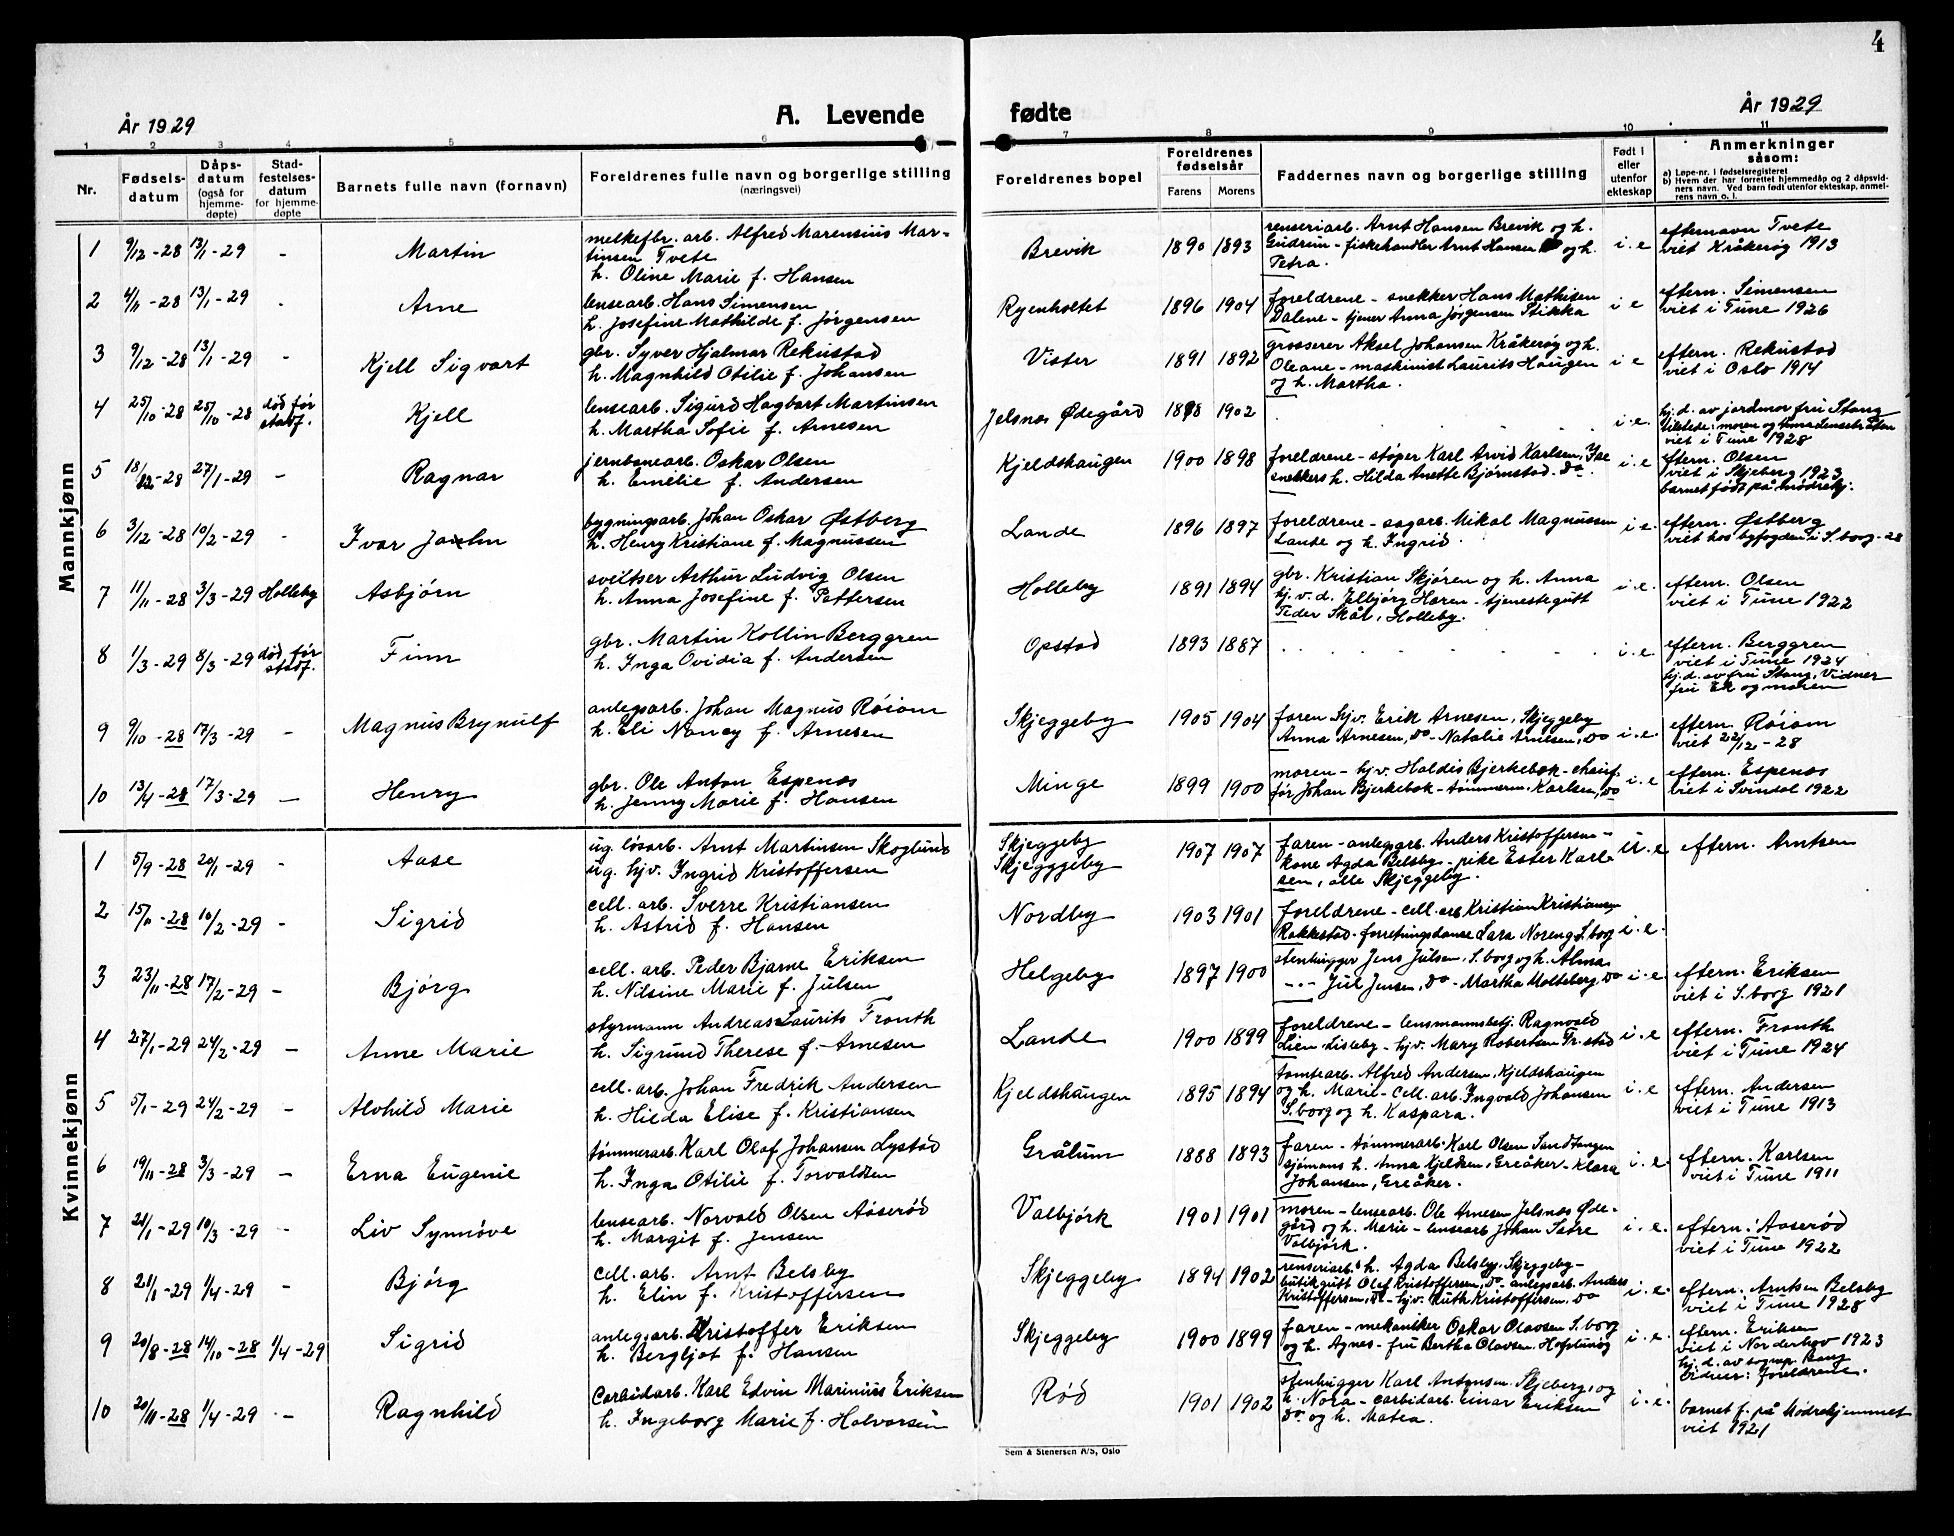 4
År 1929
A. Levende fødte
År 1929
1 2 3 4 5 6 7 8 9 10 11
Nr.
Fødsels-
datum
Dåps-
datum
(også for
hjemme-
døpte)
Stad-
festelses-
datum
for hjemme-
døpte
Barnets fulle navn (fornavn)
Foreldrenes fulle navn og borgerlige stilling
(næringsvei)
Foreldrenes bopel
Foreldrenes
fødselsår
Farens Morens
Faddernes navn og borgerlige stilling
Født i
eller
utenfor
ekteskap
Anmerkninger
såsom:
a) Løpe-nr. i fødselsregisteret
b) Hvem der har forrettet hjemmedåp og 2 dåpsvid-
ners navn. Ved barn født utenfor ekteskap, anmel-
rens navn o. l.
Mannkjønn
1 9/12-28 13/1-29 - Martin
melkefbr. arb. Alfred Marensius Mar-
tinsen Tvete
h. Oline Marie f. Hansen
Brevik 1890 1893
renseriarb. Arnt Hansen Brevik og h.
Gudrun - fiskehandler Arnt Hansen og h.
Petra.
i. e
efternavn Tvete
viet Kråkerøy 1913
2 4/11-28 13/1-29 - Arne
lensearb. Hans Simensen
h. Josefine Mathilde f. Jørgensen
Ryenholtet 1896 1904
foreldrene - snekker Hans Mathisen
Dalene - tjener Anna Jørgensen Stikka
i e
eftern. Simensen
viet i Tune 1926
3 9/12-28 13/1-29 - Kjell Sigvart
gbr. Syver Hjalmar Rekustad
h. Magnhild Otilie f. Johansen
Vister 1891 1892
grosserer Aksel Johansen Kråkerøy og h.
Oleane - maskinist Laurits Haugen
og h. Martha.
i e
eftern. Rekustad
viet i Oslo 1914
4 25/10-28 25/10-28 død før
stadf.
Kjell
lensearb. Sigurd Hagbart Martinsen
h. Martha Sofie f. Arnesen
Jelsnes Ødegård 1902
i. e.
hj. d. av jordmor fru Stang
tilstede: moren og
viet i Tune 1928
5 18/12-28 27/1-29 - Ragnar
jernbanearb. Oskar Olsen
h. Emelie f. Andersen
Kjeldshaugen 1900 1898
foreldrene - støper Karl Arvid Karlsen, Ise
snekkers h. Hilda Anette Bjørnstad. do.
i. e
eftern. Olsen
viet i Skjeberg 1923
barnet født på mødrehj.
6 3/12-28 10/2-29 - Ivar
bygningsarb. Johan Oskar Østberg
h. Henny Kristiane f. Magnussen
Lande 1896 1897
foreldrene - sagarb. Mikal Magnussen
Lande og h. Ingrid.
i. e.
eftern. Østberg
viet hos byfogden i S.borg - 28
7 11/11-28 3/3-29 Holleby Asbjørn
sveitser Arthur Ludvig Olsen
h. Anna Josefine f. Pettersen
Holleby 1891 1894
gbr. Kristian Skjøren og h. Anna
hj. v. d. Jelbjørg Haren - tjenestegutt
Peder Skål, Holleby.
i. e.
eftern. Olsen
viet i Tune 1922
8 1/3-29 8/3-29 død før
stadf.
Finn
gbr. Martin Kollin Berggren
h. Inga Ovidia f. Andersen
Opstad 1893 1887
i. e
eftern. Berggren
viet i Tune 1924
hj. d. av fru Stang. Vidner
fru Ek og moren
9 9/10-28 17/3-29 - Magnus Brynulf
anlegsarb. Johan Magnus Røiom
h. Eli Nancy f. Arnesen
Skjeggeby 1905 1904
faren hj. v. Erik Arnesen, Skjeggeby
Anna Arnesen, do - Natalie Arnesen, do
i. e.
eftern. Røiom
viet 22/12-28
10 13/4-28 17/3-29 - Henry
gbr. Ole Anton Espenes
h. Jenny Marie f. Hansen
Minge 1899 1900
moren - hj. v. Haldis Bjerkebæk - chauf-
før Johan Bjerkebæk - tømmerm. Karlsen, do
i. e
eftern. Espenes
viet i Svindal 1922
Kvinnekjønn
1 5/9-28 20/1-29 - Aase
ug. løsarb. Arnt Martinsen Skoglund
ug. hj. v. Ingrid Kristoffersen
Skjeggeby
Skjeggeby
1907 1907
faren - anlegsarb. Anders Kristoffersen -
kone Agda Belsby - pike Ester Karl-
sen, alle Skjeggeby.
u. e
eftern. Arntsen
2 10/2-29 - Sigrid
cell. arb. Sverre Kristiansen
h. Astrid f. Hansen
Nordby 1903 1901
foreldrene - cell. arb Kristian Kristiansen
Rakkestad - forretningsdame Lara Noreng S.borg
i. e.
3 23/11-28 17/2-29 - Bjørg
cell. arb. Peder Bjarne Eriksen
h. Nilsine Marie f. Julsen
Helgeby 1897 1900
stenhugger Jens Julsen, S.borg og h. Alma
- " - Jul Jensen, do - Martha Molteberg, do
i. e
eftern. Eriksen
viet i S.borg 1921
4 27/1-29 24/2-29 - Anne Marie
styrmann Andreas Laurits Tronth
h. Sigrund Therese f. Arnesen
Lande 1900 1899
foreldrene - lensmannsbetj. Ragnvald
Lien Lisleby - hj. v. Mary Robertsen Fr.stad
i. e
eftern. Fronth
viet i Tune 1924
5 5/1-29 24/2-29 - Alvhild Marie
cell. arb. Johan Fredrik Andersen
h. Hilda Elise f. Kristiansen
Kjeldshaugen 1895 1894
tomtearb. Alfred Andersen, Kjeldshaugen
og h. Marie - cell. arb. Ingvald Johansen
S.borg og h. Kaspara.
i. e
eftern. Andersen
viet i Tune 1913
6 19/11-28 3/3-29 - Erna Eugenie
tømmerarb. Karl Olaf Johansen Lystad
h. Inga Otilie f. Torvaldsen
Grålum 1888 1893
faren - tømmerarb. Karl Olsen Sandtangen
sjømans h. Anna Kjelsen, Greåker - Klara
Johansen, Greåker.
i. e.
eftern. Karlsen
viet i Tune 1911
7 21/1-29 10/3-29 - Liv Synnøve
lensearb. Norvald Olsen Aaserød
h. Margit f. Jensen
Valbjørk 1901 1901
moren - lensearb. Ole Arnesen Jelsnes Øde-
gård og h. Marie - lensearb. Johan Sætre
Valbjørk.
i. e.
eftern. Aaserød
viet i Tune 1922
8 21/1-29 1/4-29 - Bjørg
cell. arb. Arnt Belsby
h. Elin f. Kristoffersen
Skjeggeby 1894 1902
renseriarb. h. Agda Belsby, Skjeggeby -
butikgutt Olaf Kristoffersen, do - anlegsarb. Anders
Kristoffersen, do - hj. v. Ruth Kristoffersen, do
i. e.
eftern. Arntsen Belsby
viet i Tune 1928
9 20/8-28 14/10-28 1/4-29 Sigrid
anlegsarb. Kristoffer Eriksen
h. Bergljot f. Hansen
Skjeggeby 1900 1899
faren - mekaniker Oskar Olavsen S.borg
og h. Agnes - fru Bertha Olavsen, Hafslunøy
i. e.
eftern. Eriksen
viet i Norderhov 1923
hj. d. av sognepr. Bang
Vidner: foreldrene.
10 20/11-28 1/4-29 - Ragnhild
Carbidarb. Karl Edvin Marinius Eriksen
h. Ingeborg Marie f. Halvorsen
Rød 1901 1902
stenhugger Karl Antonsen Skjeberg, og
h. Nora - carbidarb. Einar Eriksen
do og h. Matea.
i. e.
barnet f. på Mødrehjemmet
viet 1921
Sem & Stenersen A/S, Oslo